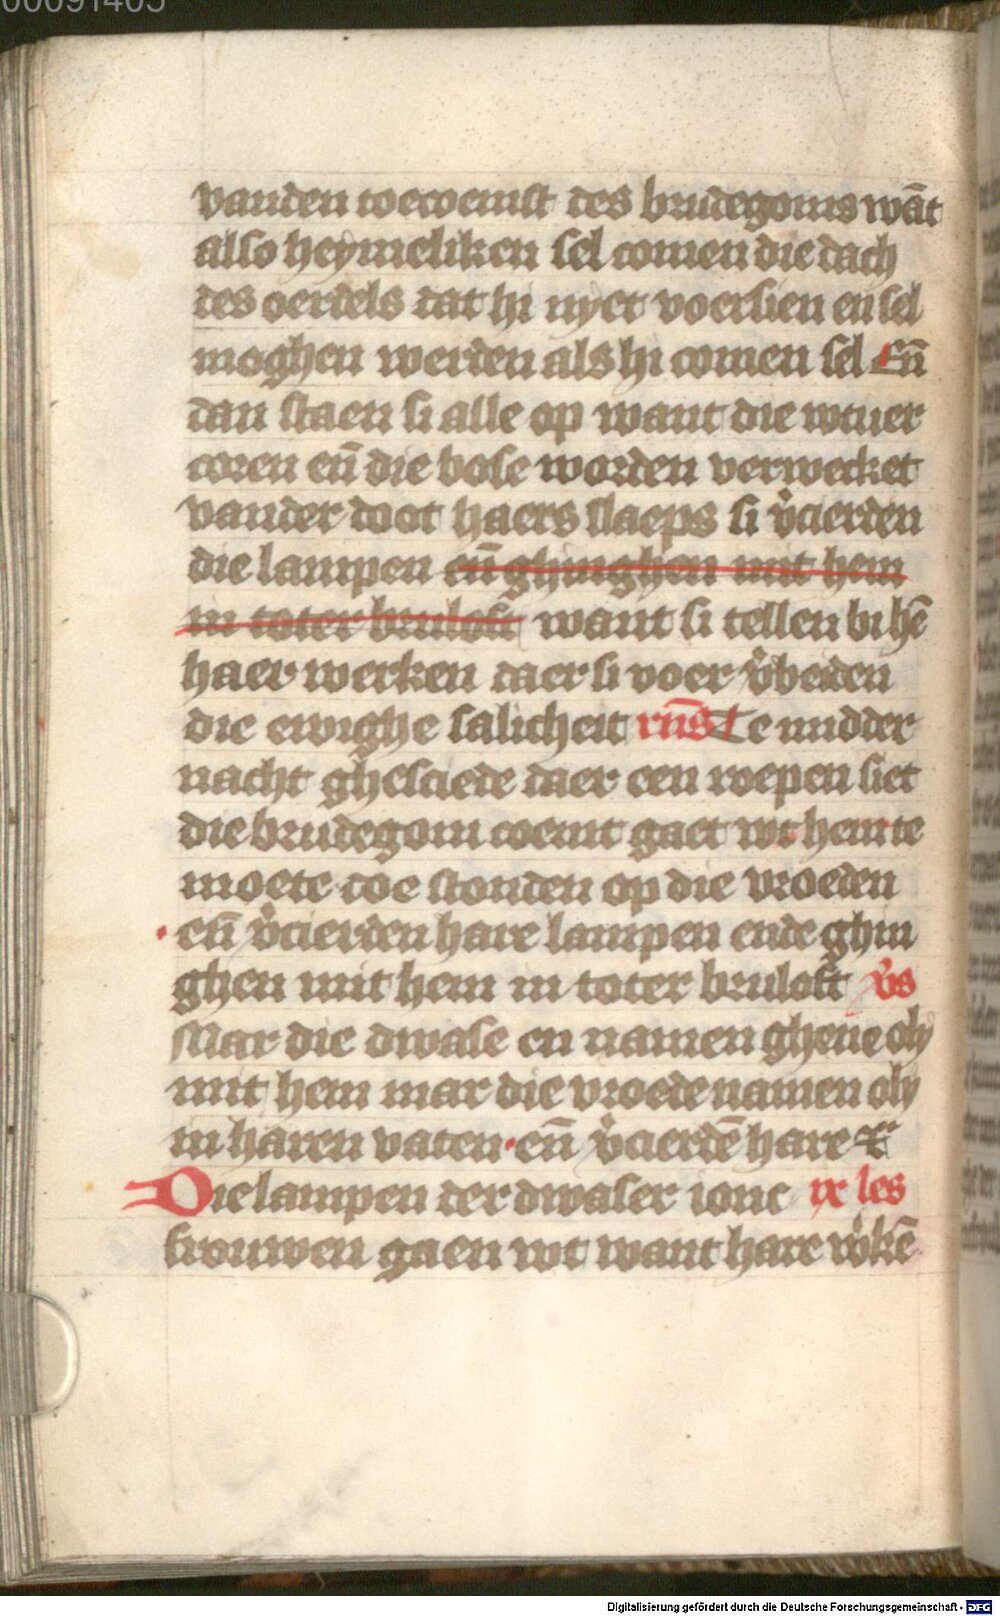 00091405
vanden toecoemst des brudegoms wāt
also heymeliken sel comen die dach
des oerdels dat hi nyet voersien en sel
moghen werden als hi comen sel Eñ
dan staen si alle op want die wtuer
coren eñ die bose worden verwecket
vander doot haers slaeps si v̉cierden
die lampen eñ ghinghen mit hem
in toter bruloft want si tellen bi hē
haer werken daer si voer v̉beiden
die ewighe salicheit rn̄s Te midder
nacht ghesciede daer een roepen siet
die brudegom coemt gaet wt hem te
moete doe stonden op die vroeden
eñ v̉cierden hare lampen ende ghin
ghen mit hem in toter bruloft v̉s
Mar die dwase en namen ghene oly
mit hem mar die vroede namen oly
in haren vaten eñ v̉cierdē hare
Die lampen der dwaser ionc ix les
frouwen gaen wt want hare w̉kē
Digitalisierung gefördert durch die Deutsche Forschungsgemeinschaft - DFG